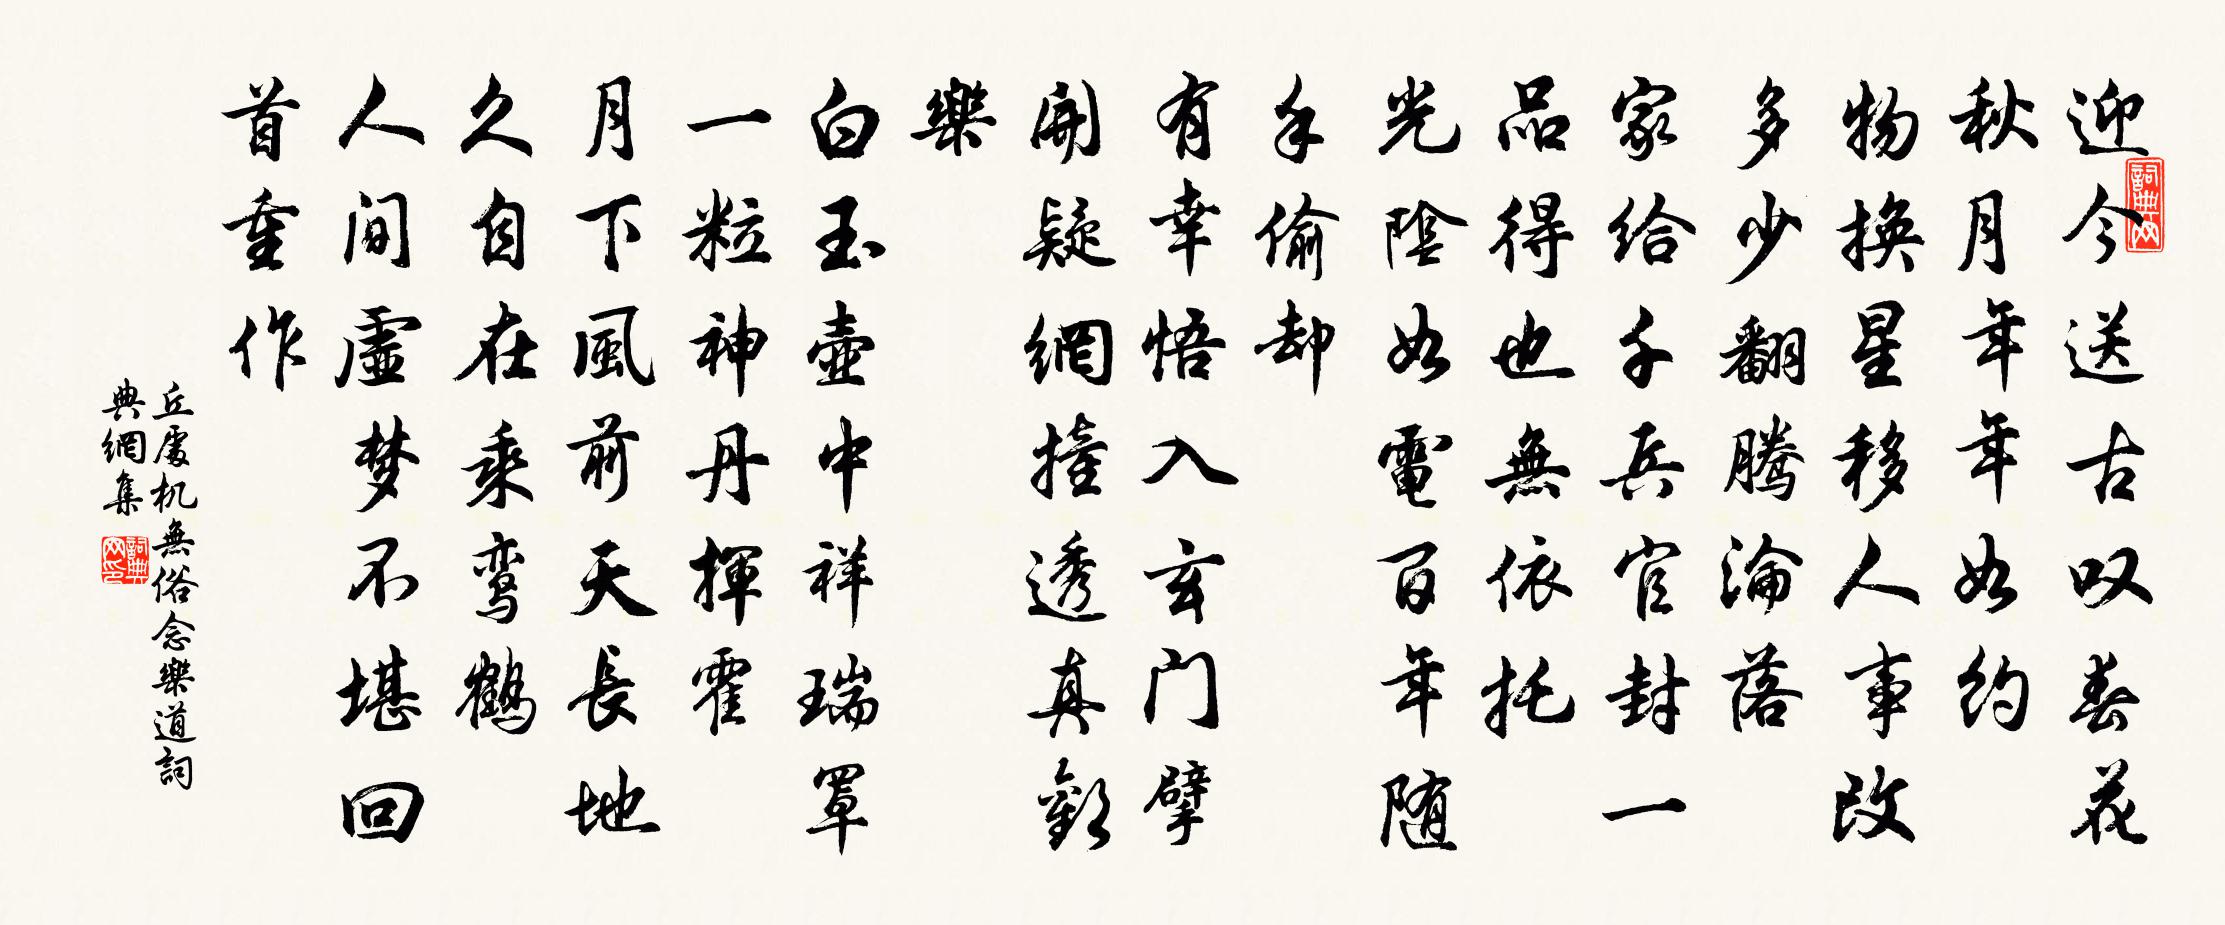 迎今送古叹春花
秋月年年年如约
物换星移人事改
多少翻腾沦落
家给千兵官封一
品得也無依托
光陰如電百年随
手偷却
有幸悟入玄门擘
開疑網撞透真歡
樂
白玉壺中祥瑞罩
一粒神丹揮霍
月下風前天長地
久自在乘鸾鶴
人间虛梦不堪回
首重作
丘處机無俗念樂道詞
典網集
詞典网
詞典网印